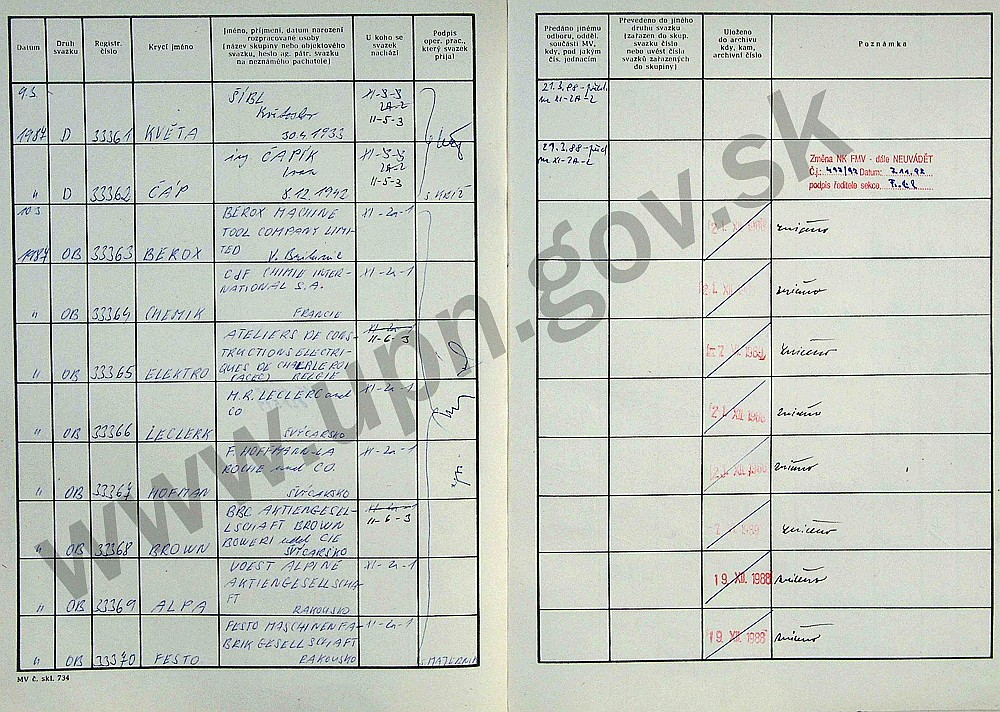 Datum
Druh svazku
Registr. číslo
Krycí jméno
Jméno, příjmení, datum narození
rozpracované osoby
(název skupiny nebo objektového
svazku, heslo ag. pátr. svazku
na neznámého pachatele)
U koho se
svazek
nachází
Podpis
oper. prac.,
který svazek
přijal
Předáno jinému
odboru, odděl.
součásti MV,
kdy, pod jakým
čís. jednacím
Převedeno do jiného
druhu svazku
(zařazen do skup.
svazku číslo
nebo uvést čísla
svazků zařazených
do skupiny)
Uloženo
do archivu
kdy, kam,
archivní číslo
Poznámka
9.3.
1987 D 33361 KVĚTA
ŠÍBL
Květoslav
30.4.1933
XI-3-3
2A-2
II-5-3
21.3.88
na XI-2A-2
" D 33362 ČÁP
ing ČAPÍK
Ivan
8.12.1942
XI-3-3
2A-2
II-5-3
S KŘÍŽ
29.3.88
na XI-2A-2
Změna NK FMV - dále NEUVÁDĚT
Č.j.: Datum:
podpis ředitele sekce.
10.3.
1987 OB 33363 BEROX
BEROX MACHINE
TOOL COMPANY LIMI-
TED
V. Britanie
XI-2a-1
zničeno
" OB 33364 CHEMIK
CdF CHIMIE INTER-
NATIONAL S.A.
FRANCIE
XI-2a-1
zničeno
" OB 33365 ELEKTRO
ATELIERS DE CONS-
TRUCTIONS ELECTRI-
QUES DE CHARLEROI
(ACEC) BELGIE
XI-2a-1
II-6-3
zničeno
" OB 33366 LECLERK
M.R. LECLERC and
CO
ŠVÝCARSKO
XI-2a-1
21. XII. 1988
zničeno
" OB 33367 HOFMAN
F. HOFFMANN-LA
ROCHE und CO.
ŠVÝCARSKO
XI-2a-1
21. XII. 1988
zničeno
" OB 33368 BROWN
BBC AKTIENGESEL-
LSCHAFT BROWN
BOWERI und CIE
ŠVÝCARSKO
XI-2a-1
II-6-3
zničeno
" OB 33369 ALPA
VOEST ALPINE
AKTIENGESELLSCHA-
FT
RAKOUSKO
XI-2a-1
19. XII. 1988
zničeno
" OB 33370 FESTO
FESTO MASCHINENFA-
BRIK GESELLSCHAFT
RAKOUSKO
II-2a-1
19. XII. 1988
zničeno
MV č. skl. 734
www.upn.gov.sk